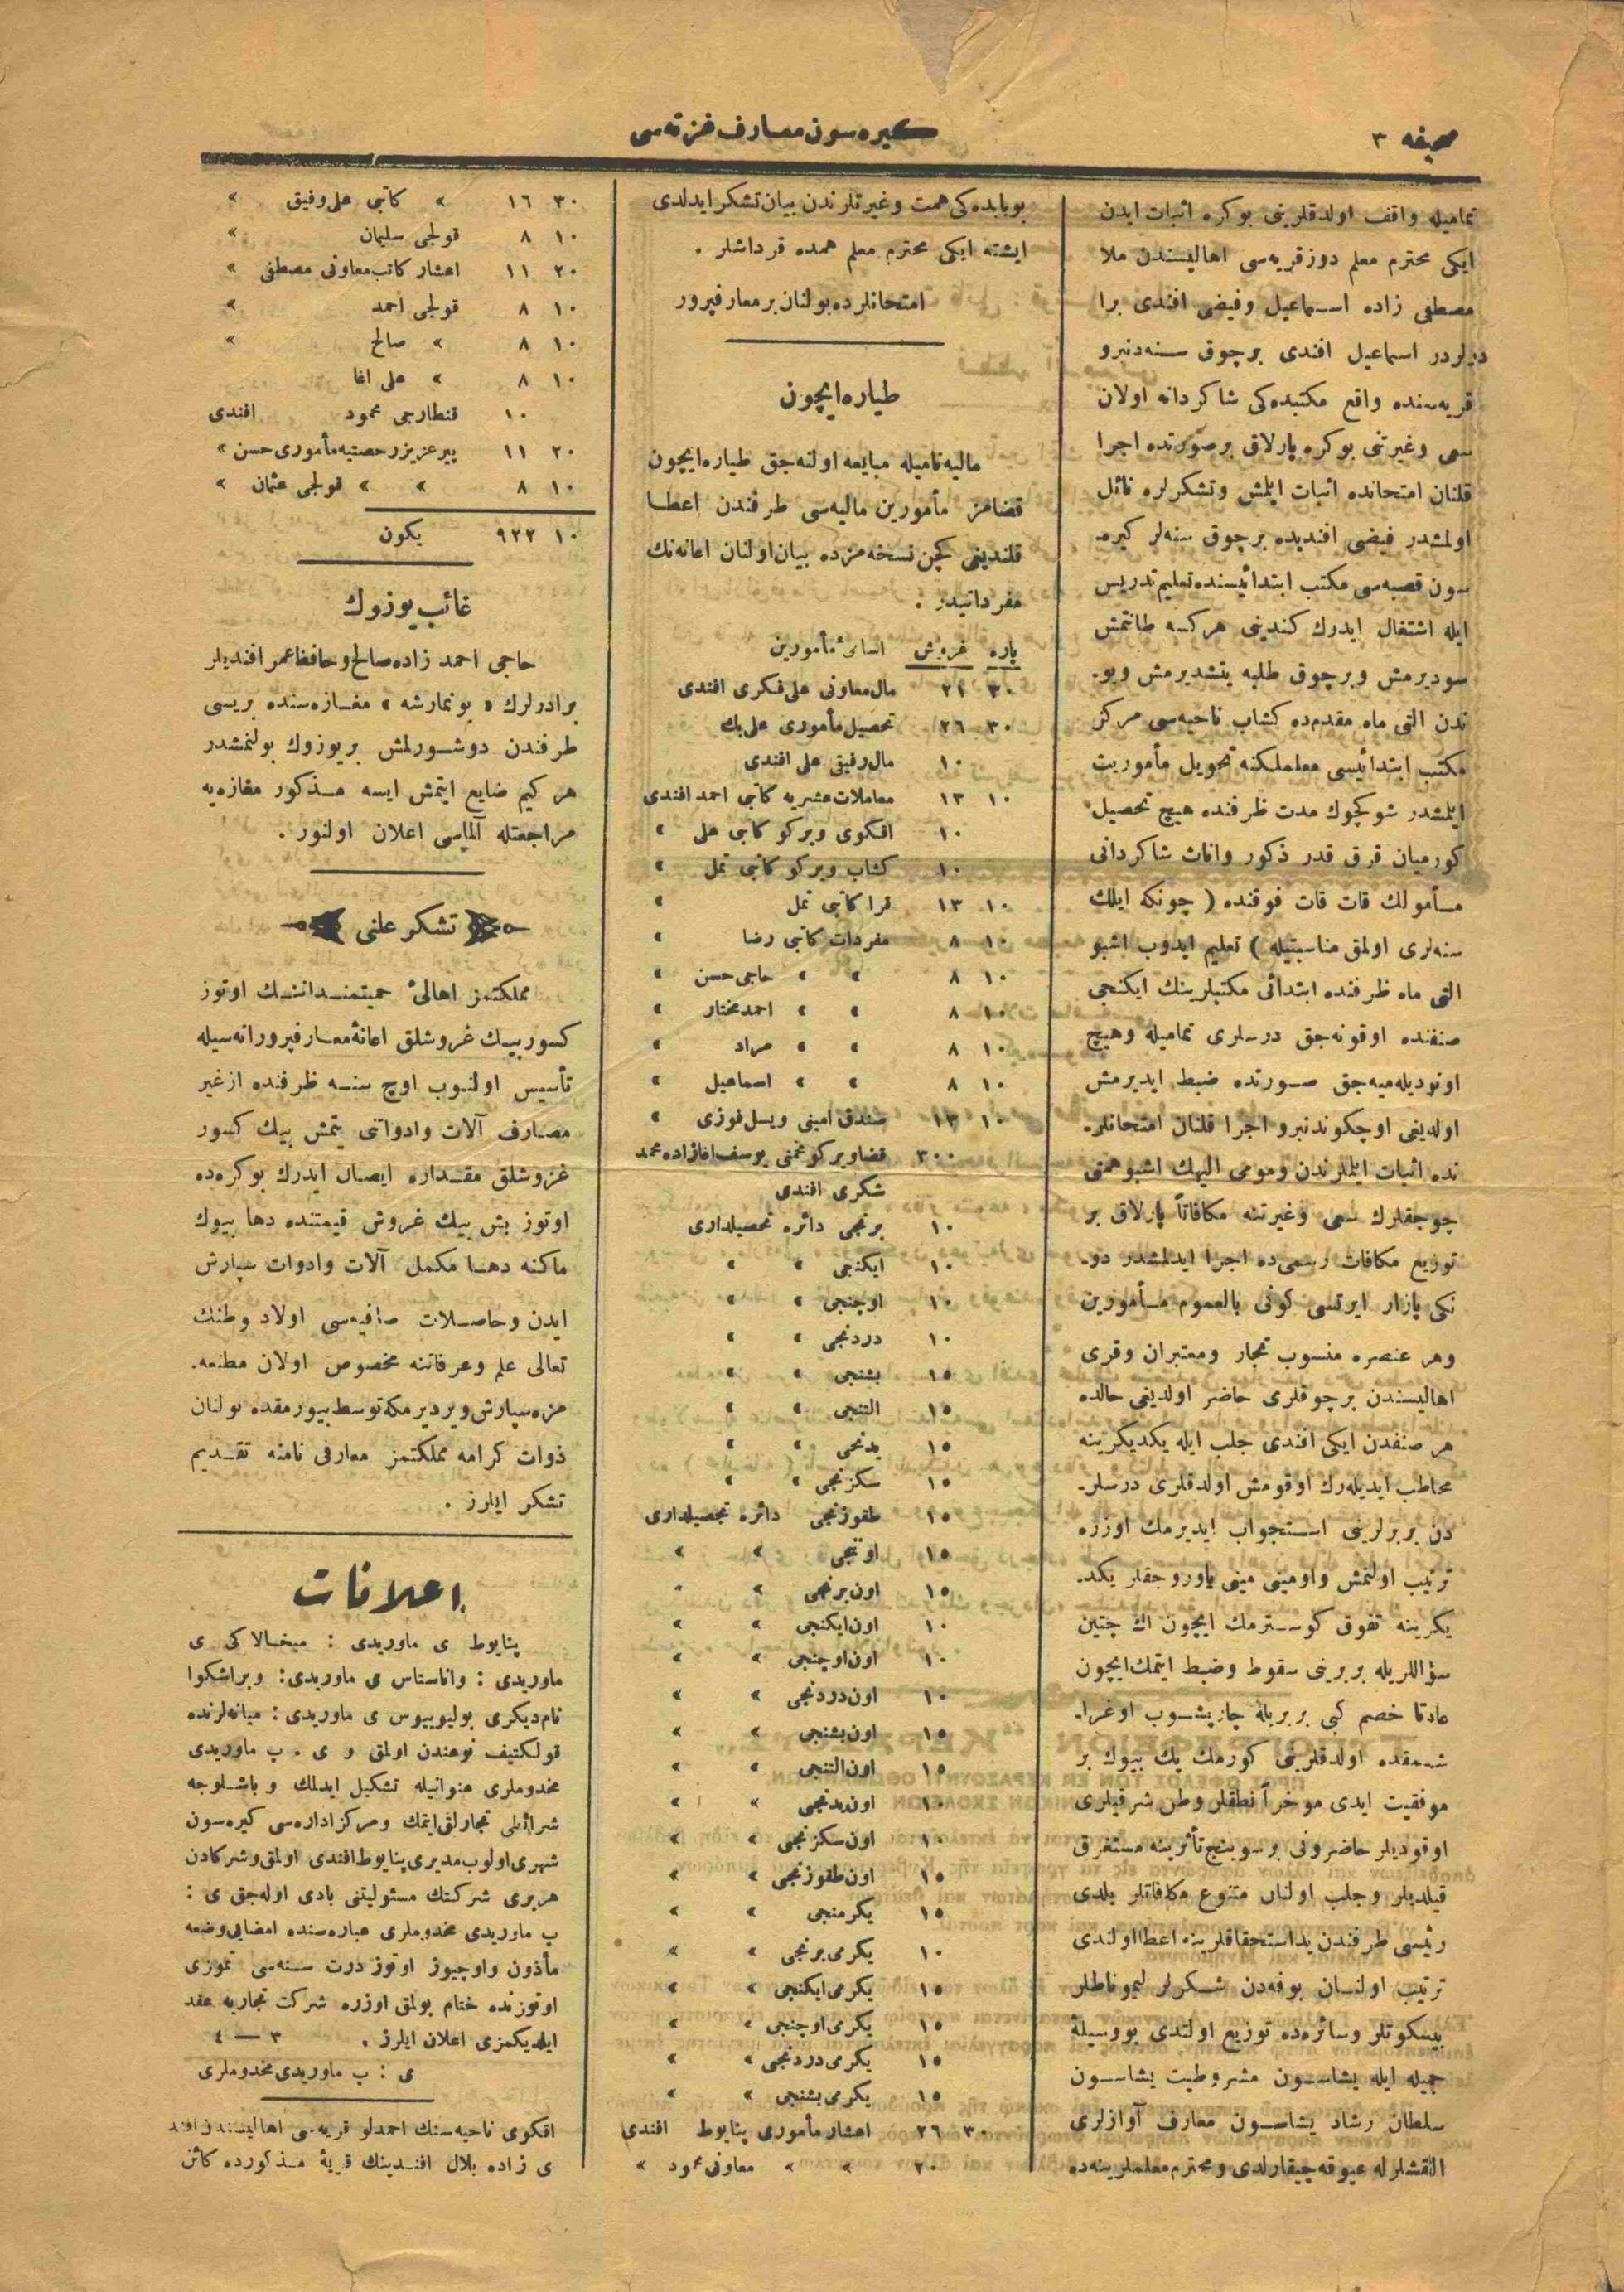 صحیفه ٣
کیره‌سون معارف غزته‌سی
تمامیله واقف اولدقلرینی بوکره اثبات ایدن
ایکی محترم معلم دوزقریه‌سی اهالیسندن ملا
مصطفی زاده اسماعیل وفیضی افندی برا
درلردر اسماعیل افندی برچوق سنه‌دنبرو
قریه‌سنده واقع مکتبده‌کی شاکردانه اولان
سعی وغیرتنی بوکره پارلاق برصورتده اجرا
قلنان امتحانده اثبات ایلمش وتشکرلره نائل
اولمشدر فیضی افندیده برچوق سنه‌لر کیره‌ـ
سون قصبه‌سی مکتب ابتدائیسنده تعلیم تدریس
ایله اشتغال ایدرك کندینی هرکسه طانتمش
سودیرمش وبرچوق طلبه یتشدیرمش وبوـ
ندن التی ماه مقدم‌ده کشاب ناحیه‌سی مرکز
مکتب ابتدائیسی معلملکنه تحویل مأموریت
ایلمشدر شو کچوك مدت ظرفنده هیچ تحصیل
کورمیان قرق قدر ذکور واناث شاکردانی
مأمولك قات قات فوقنده ( چونکه ایلك
سنه‌لری اولمق مناسبتیله ) تعلیم ایدوب اشبو
التی ماه ظرفنده ابتدائی مکتبلرینك ایکنجی
صنفنده اوقونه‌جق درسلری تمامیله وهیچ
اونودیله‌میه‌جق صورتده ضبط ایدیرمش
اولدیغی اوچکوندنبرو اجرا قلنان امتحانلرـ
نده اثبات ایلملرندن ومومی الیهك اشبو همتی
چوجقلرك سعی وغیرتنه مکافاتاً پارلاق بر
توزیع مکافات رسمی‌ده اجرا ایدلمشدر دوـ
نکی پازار ایرتسی کونی بالعموم مأمورین
وهر عنصره منسوب تجار ومعتبران وقری
اهالیسندن برچوقلری حاضر اولدیغی حالده
هر صنفدن ایکی افندی جلب ایله یکدیکرینه
مخاطب ایدیله‌رك اوقومش اولدقلری درسلرـ
دن بربرلرینی استجواب ایدیرمك اوزره
ترتیب اولنمش واومینی مینی یاوروجقلر یکدـ
یکرینه تفوق کوسترمك ایچون اك چتین
سؤاللریله بربرینی سقوط وضبط ایتمك ایچون
عادتا خصم کبی بربریله چارپشوب اوغراـ
شمقده اولدقلرینی کورمك پك بیوك بر
موفقیت ایدی موخراً نطقلر وطن شرقیلری
اوقودیلر حاضرونی برسوینج تأثرینه مستغرق
قیلدیلر وجلب اولنان متنوع مکافاتلر بلدی
رئیسی طرفندن یداستحقاقلرینه اعطا اولندی
ترتیب اولنان بوفه‌دن شکرلر لیموناطلر
بیسکوتلر وسائره‌ده توزیع اولندی بووسیلهٔ
جمیله ایله یشاسون مشروطیت یشاسون
سلطان رشاد یشاسون معارف آوازلری
القشلرله عیوقه چیقارلدی ومحترم معلملرینه‌ده
بوبابده‌کی همت وغیرتلرندن بیان تشکر ایدلدی
ایشته ایکی محترم معلم همده قرداشلر .
امتحانلرده بولنان برمعارفپرور
طیاره ایچون
مالیه نامیله مبایعه اولنه‌جق طیاره ایچون
قضامز مأمورین مالیه‌سی طرفندن اعطا
قلندیغی کچن نسخه‌مزده بیان اولنان اعانه‌نك
مفرداتیدر .
پاره غروش اسائ مأمورین
٣٠ ٢١ مال معاونی علی فکری افندی
٣٠ ٢٦ تحصیل مأموری علی بك
١٠ مال رفیقی علی افندی
١٠ ١٣ معاملات عشریه کاتبی احمد افندی
١٠ اقکوی ویرکو کاتبی علی »
١٠ کشاب ویرکو کاتبی تمل »
١٠ ١٣ قرا کاتبی تمل »
١٠ ٨ مفردات کاتبی رضا »
١٠ ٨ » » حاجی حسن »
١٠ ٨ » » احمد مختار »
١٠ ٨ » » مراد »
١٠ ٨ » » اسماعیل »
١٠ ١٣ صندق امینی ویسل فوزی »
٣٠٠ قضا ویرکو مخمنی یوسف اغازاده محمد
شکری افندی
١٠ برنجی دائره تحصیلداری
١٠ ایکنجی » »
١٠ اوچنجی » »
١٠ دردنجی » »
١٥ بشنجی » »
١٥ التنجی » »
١٥ یدنجی » »
١٥ سکزنجی » »
١٥ طقوزنجی دائره تحصیلداری
١٥ اوننجی » »
١٥ اون برنجی » »
١٠ اون ایکنجی » »
١٠ اون اوچنجی » »
١٠ اون دردنجی » »
١٥ اون بشنجی » »
١٥ اون التنجی » »
١٠ اون یدنجی » »
١٠ اون سکزنجی » »
١٥ اون طقوزنجی » »
١٥ یکرمنجی » »
١٠ یکرمی برنجی » »
١٥ یکرمی ایکنجی » »
١٥ یکرمی اوچنجی » »
١٥ یکرمی دردنجی » »
١٥ یکرمی بشنجی » »
٣٠ ٢٦ اعشار مأموری پنایوط افندی
٢٠ » » معاونی محمود »
٣٠ ١٦ » کاتبی علی وفیق »
١٠ ٨ قولجی سلیمان »
٢٠ ١١ اعشار کاتب معاونی مصطفی »
١٠ ٨ قولجی احمد »
١٠ ٨ » صالح »
١٠ ٨ » علی اغا
١٠ قنطارجی محمود افندی
٢٠ ١١ پیرعزیز رخصتیه مأموری حسن »
١٠ ٨ » » قولجی عثمان »
١٠ ٩٢٢ یکون
غائب یوزوك
حاجی احمد زاده صالح وحافظ عمر افندیلر
برادرلرك « بونمارشه » مغازه‌سنده بریسی
طرفندن دوشورلمش بریوزوك بولنمشدر
هرکیم ضایع ایتمش ایسه مذکور مغازه‌یه
مراجعتله آلماسی اعلان اولنور .
تشکر علنی
مملکتمز اهالیٔ حمیتمندانـنك اوتوز
کسور بیك غروشلق اعانهٔ معارفپرورانه‌سیله
تأسیس اولنوب اوچ سنه ظرفنده ازغیر
مصارف آلات وادواتنی یتمش بیك کسور
غروشلق مقداره ایصال ایدرك بوکره‌ده
اوتوز بش بیك غروش قیمتنده دها بیوك
ماکنه دها مکمل آلات وادوات سپارش
ایدن وحاصلات صافیه‌سی اولاد وطنك
تعالی علم وعرفاننه مخصوص اولان مطبعه‌ـ
مزه سپارش ویردیرمکه توسط بیورمقده بولنان
ذوات کرامه مملکتمز معارفی نامنه تقدیم
تشکر ایلرز .
اعلانات
پنایوط ی ماوریدی : میخالاکی ی
ماوریدی : واناستاس ی ماوریدی: وبراشکوا
نام دیکری بولیوبیوس ی ماوریدی : میانه‌لرنده
قولکتیف نوعندن اولمق و ی . پ ماوریدی
مخدوملری عنوانیله تشکیل ایدلمك وباشلوجه
شرائطی تجارلق ایتمك ومرکز اداره‌سی کیره‌سون
شهری اولوب مدیری پنایوط افندی اولمق وشرکادن
هربری شرکتك مسئولیتنی بادی اوله‌جق ی :
پ ماوریدی مخدوملری عباره‌سنده امضایی وضعه
مأذون واوچیوز اوتوز درت سنه‌سی تموزی
اوتوزنده ختام بولمق اوزره شرکت تجاریه عقد
ایلدیکمزی اعلان ایلرز . ٣ — ٤
ی : پ ماوریدی مخدوملری
اقکوی ناحیه‌سنك احمدلو قریه‌سی اهالیسندن افند
ی زاده بلال افندینك قریهٔ مذکورده کائن